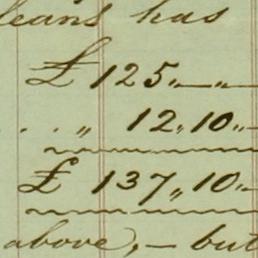 leans has
£ 125„—„—
. . „ 12„10„-
£ 137„10„-
above,— but